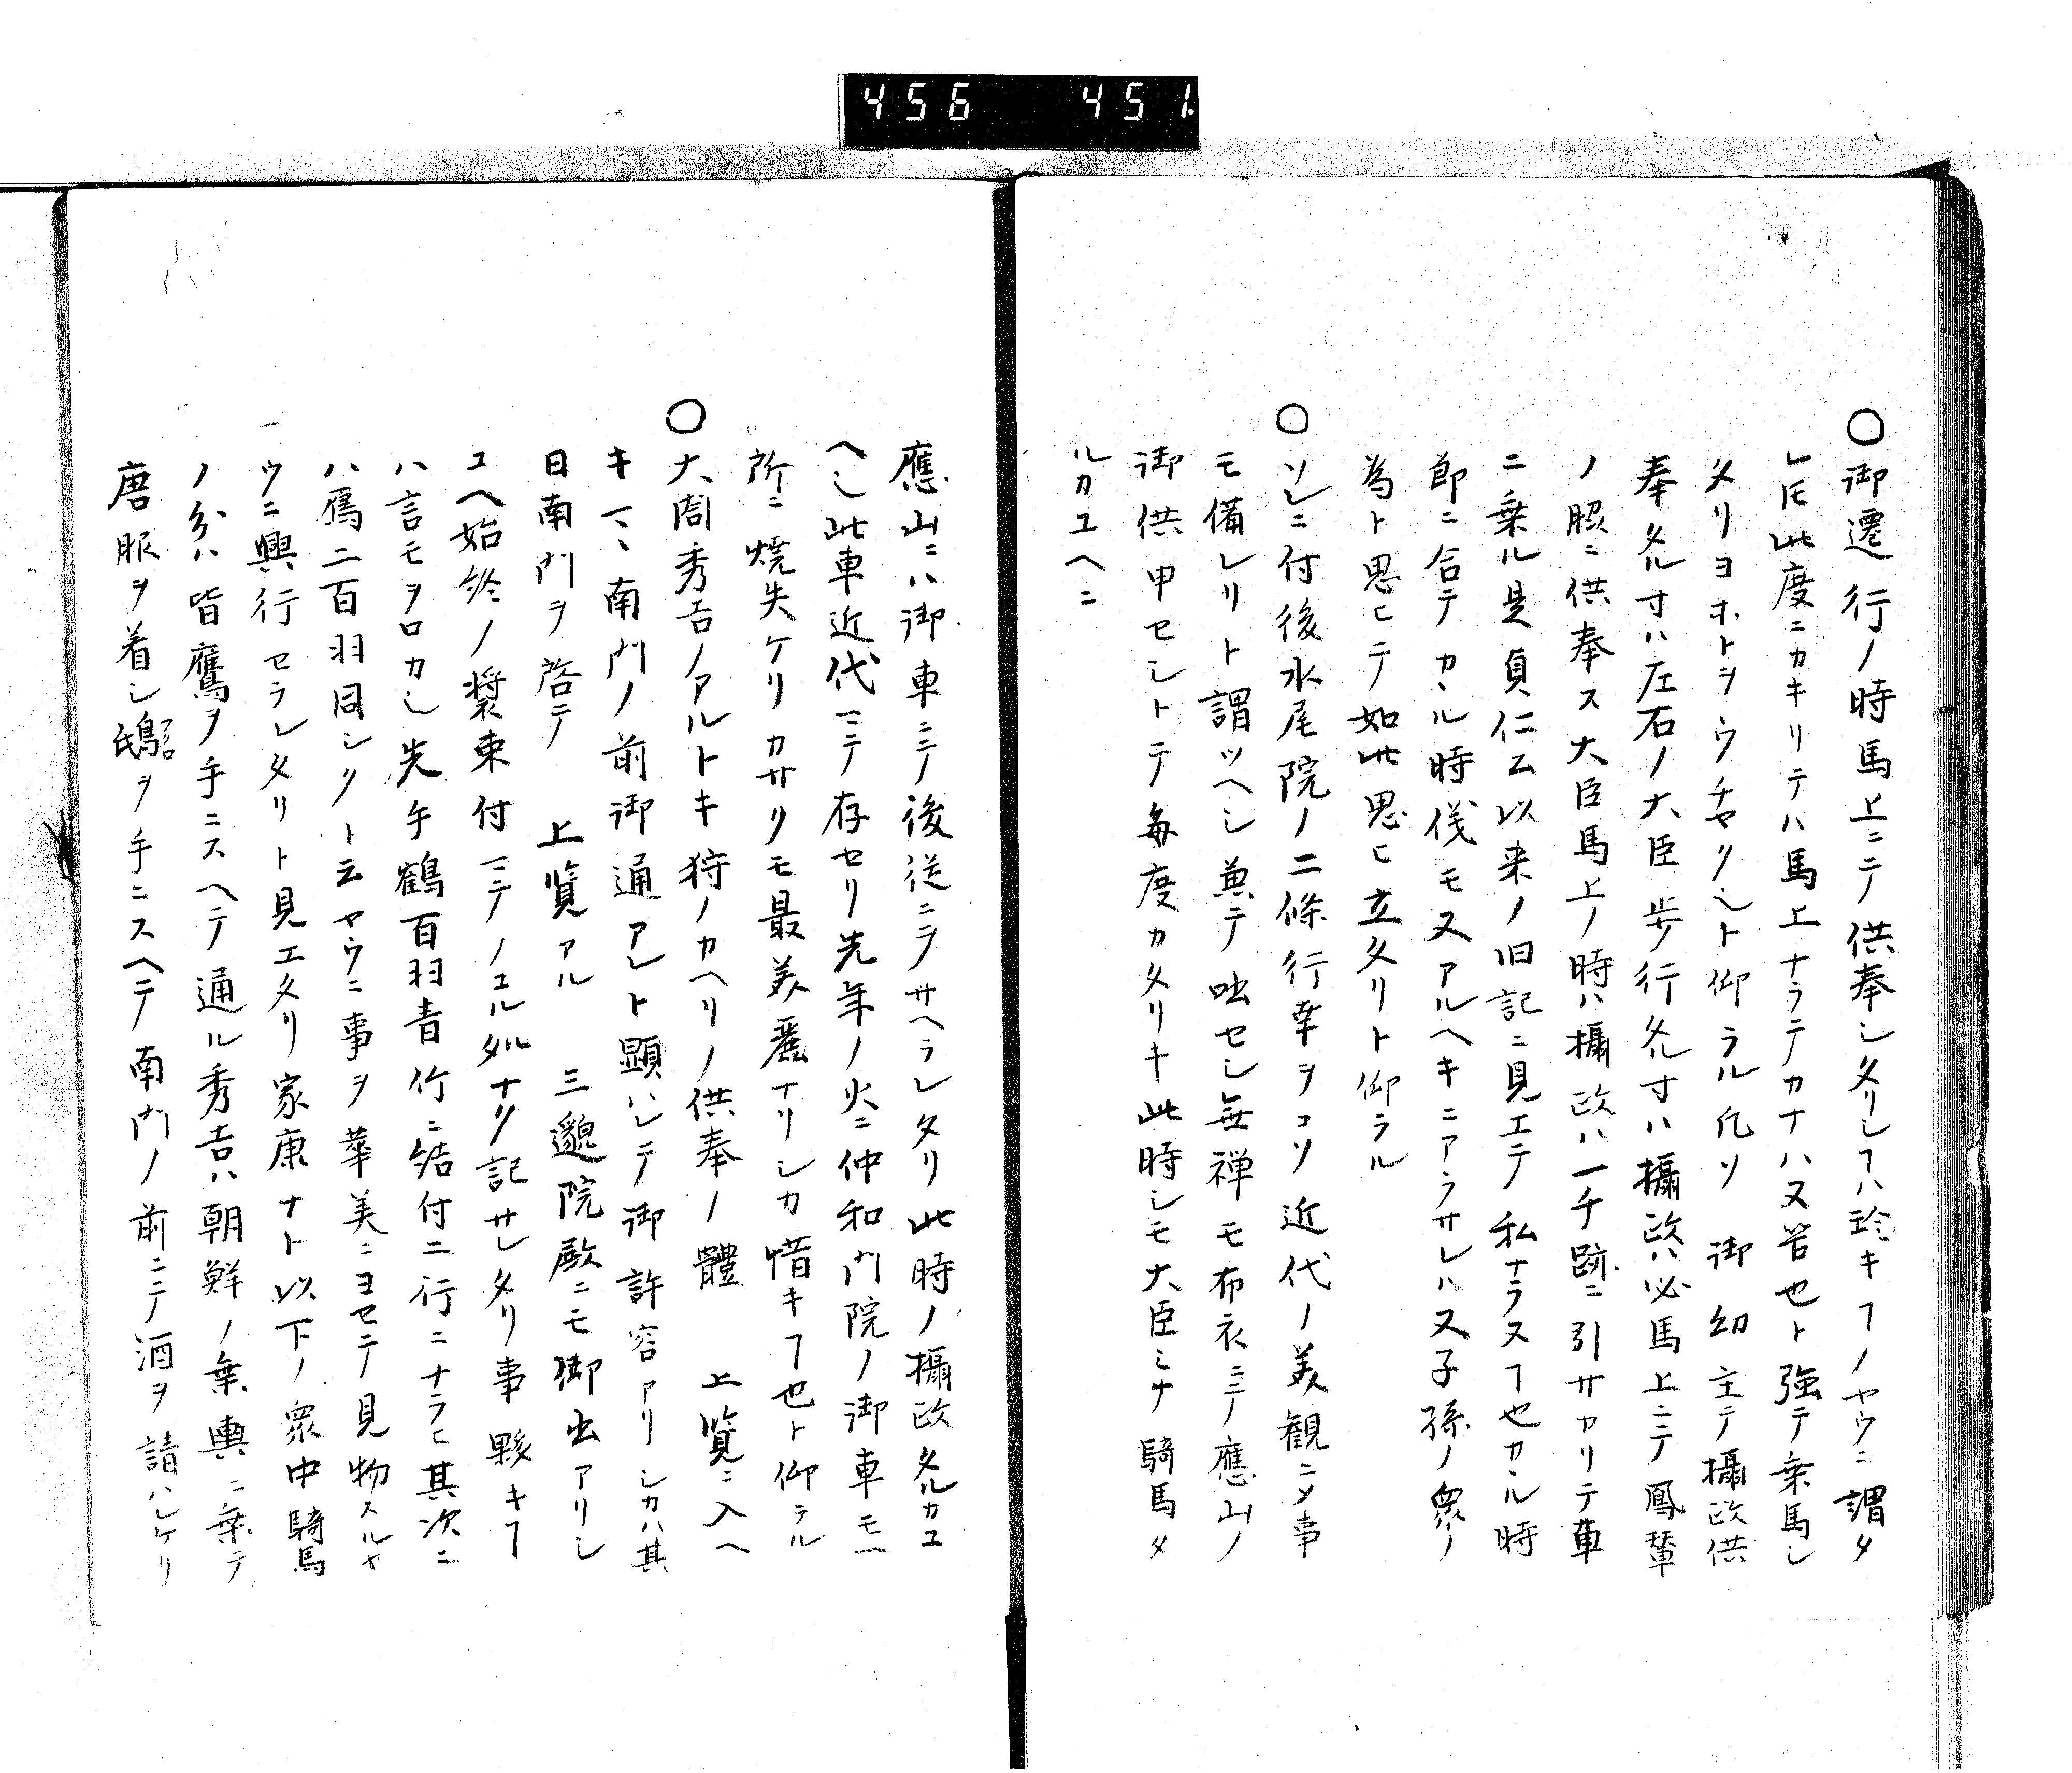 456 451
〇御遷行ノ時馬上ニテ供奉シタリシヿハ珍キヿノヤウニ謂タ
レ𪜈此度ニカキリテハ馬上ナラテカナハヌ筈也ト強テ乗馬シ
タリヨホトヲウチヤクシト仰ラル凡ソ 御幼主テ攝政供
奉タル寸ハ左右ノ大臣歩行タル寸ハ攝政ハ必馬上ニテ鳳輦
ノ腋ニ供奉ス大臣馬上ノ時ハ攝政ハ一チ跡ニ引サカリテ車
ニ乗ル是貞仁公以来ノ旧記ニ見エテ私ナラヌヿ也カヽル時
節ニ合テカヽル時儀モ又アルヘキニアラサレハ又子孫ノ衆ノ
為ト思ヒテ如此思ヒ立タリト仰ラル
〇ソレニ付後水尾院ノ二條行幸ヲコソ近代ノ美観ニメ事
モ備レリト謂ツヘシ兼テ咄セシ無禅モ布衣ニテ應山ノ
御供申セシトテ毎度カタリキ此時シモ大臣ミナ騎馬タ
ルカユヘニ
應山ニハ御車ニテ後従ニヲサヘラレタリ此時ノ攝政タルカユ
ヘシ此車近代マテ存セリ先年ノ火ニ仲和門院ノ御車モ一
所ニ焼失ケリカサリモ最美麗ナリシカ惜キヿ也ト仰ラル
〇大閤秀吉ノアルトキ狩ノカヘリノ供奉ノ體 上覧ニ入ヘ
キマヽ南門ノ前御通アレト顕ハレテ御許容アリシカハ其
日南門ヲ啓テ 上覧アル 三藐院殿ニモ御出アリシ
ユヘ始終ノ裝束付マテノコル処ナク記サレタリ事夥キヿ
ハ言モヲロカシ先ヅ鶴百羽青竹ニ結付二行ニナラヒ其次ニ
ハ鴈二百羽同シクト云ヤウニ事ヲ華美ニヨセテ見物スルヤ
ウニ興行セラレタリト見エタリ家康ナト以下ノ衆中騎馬
ノ分ハ皆鷹ヲ手ニスヘテ通ル秀吉ハ朝鮮ノ乗輿ニ乗テ
唐服ヲ着シ鴟ヲ手ニスヘテ南門ノ前ニテ酒ヲ請ハレケリ